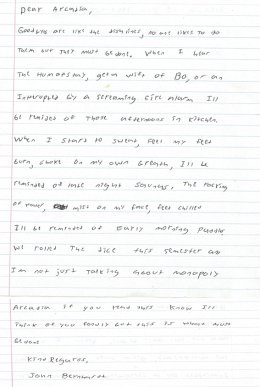 Dear Arcadia,
Goodbyes are like the dishes, no one likes to do
them but they must be done. When I hear
The Humors my, get a wift of BO, or an
Interupted by a screaming fire alarm Ill
be reminded of those afternoons in kitchen.
When I start to sweat, feel my feet
burn, choke on my own breath, Ill be
reminded of late night saunas. The rocking
of rower, mist on my face, feet chilled
Ill be reminded of early morning paddle
We rolled the dice this semester and
I'm not just talking about monopoly
Arcadia if you read this know Ill
think of you fondly but this is what must
be done
Kind Regards,
John Bernhardt